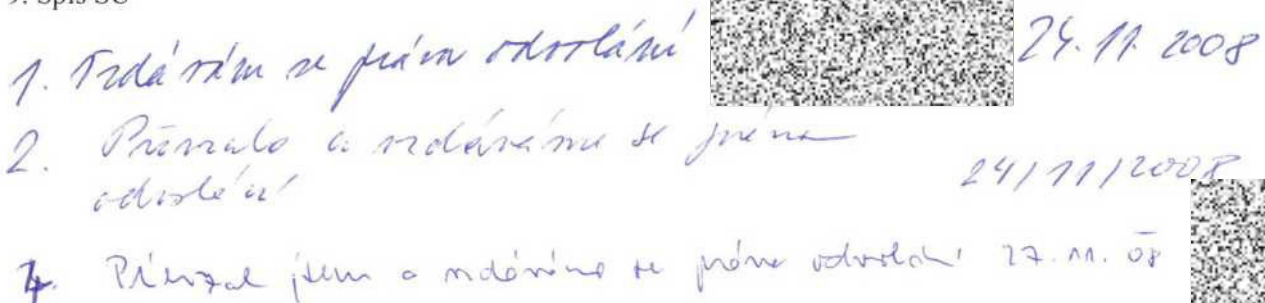 9. Spis SÚ
1. Vzdávám se práva odvolání 24. 11. 2008
2. Převzalo a vzdáváme se práva
odvolání 24/11/2008
4. Převzal jsem a vzdáváme se práva odvolání 27. 11. 08